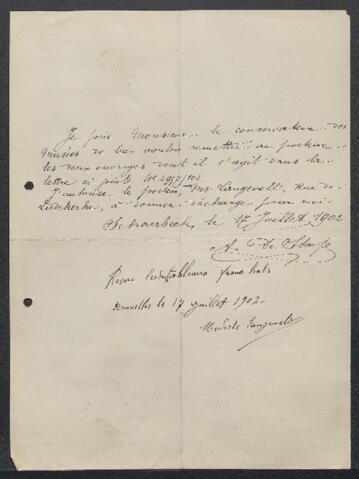 Je prie Monsieur le conservateur des
musées de bien vouloir remettre au porteur
les deux ouvrages dont il s'agit dans la
lettre ci jointe. No 4957/103
J'autorise le porteur, Mr. Langevelt, Rue de
Liedekerke, à donner décharge pour moi.
Schaerbeek, le 17 Juillet 1902
A.
Reçu les deux tableaux
Bruxelles le 17 juillet 1902
Modeste Langevelt